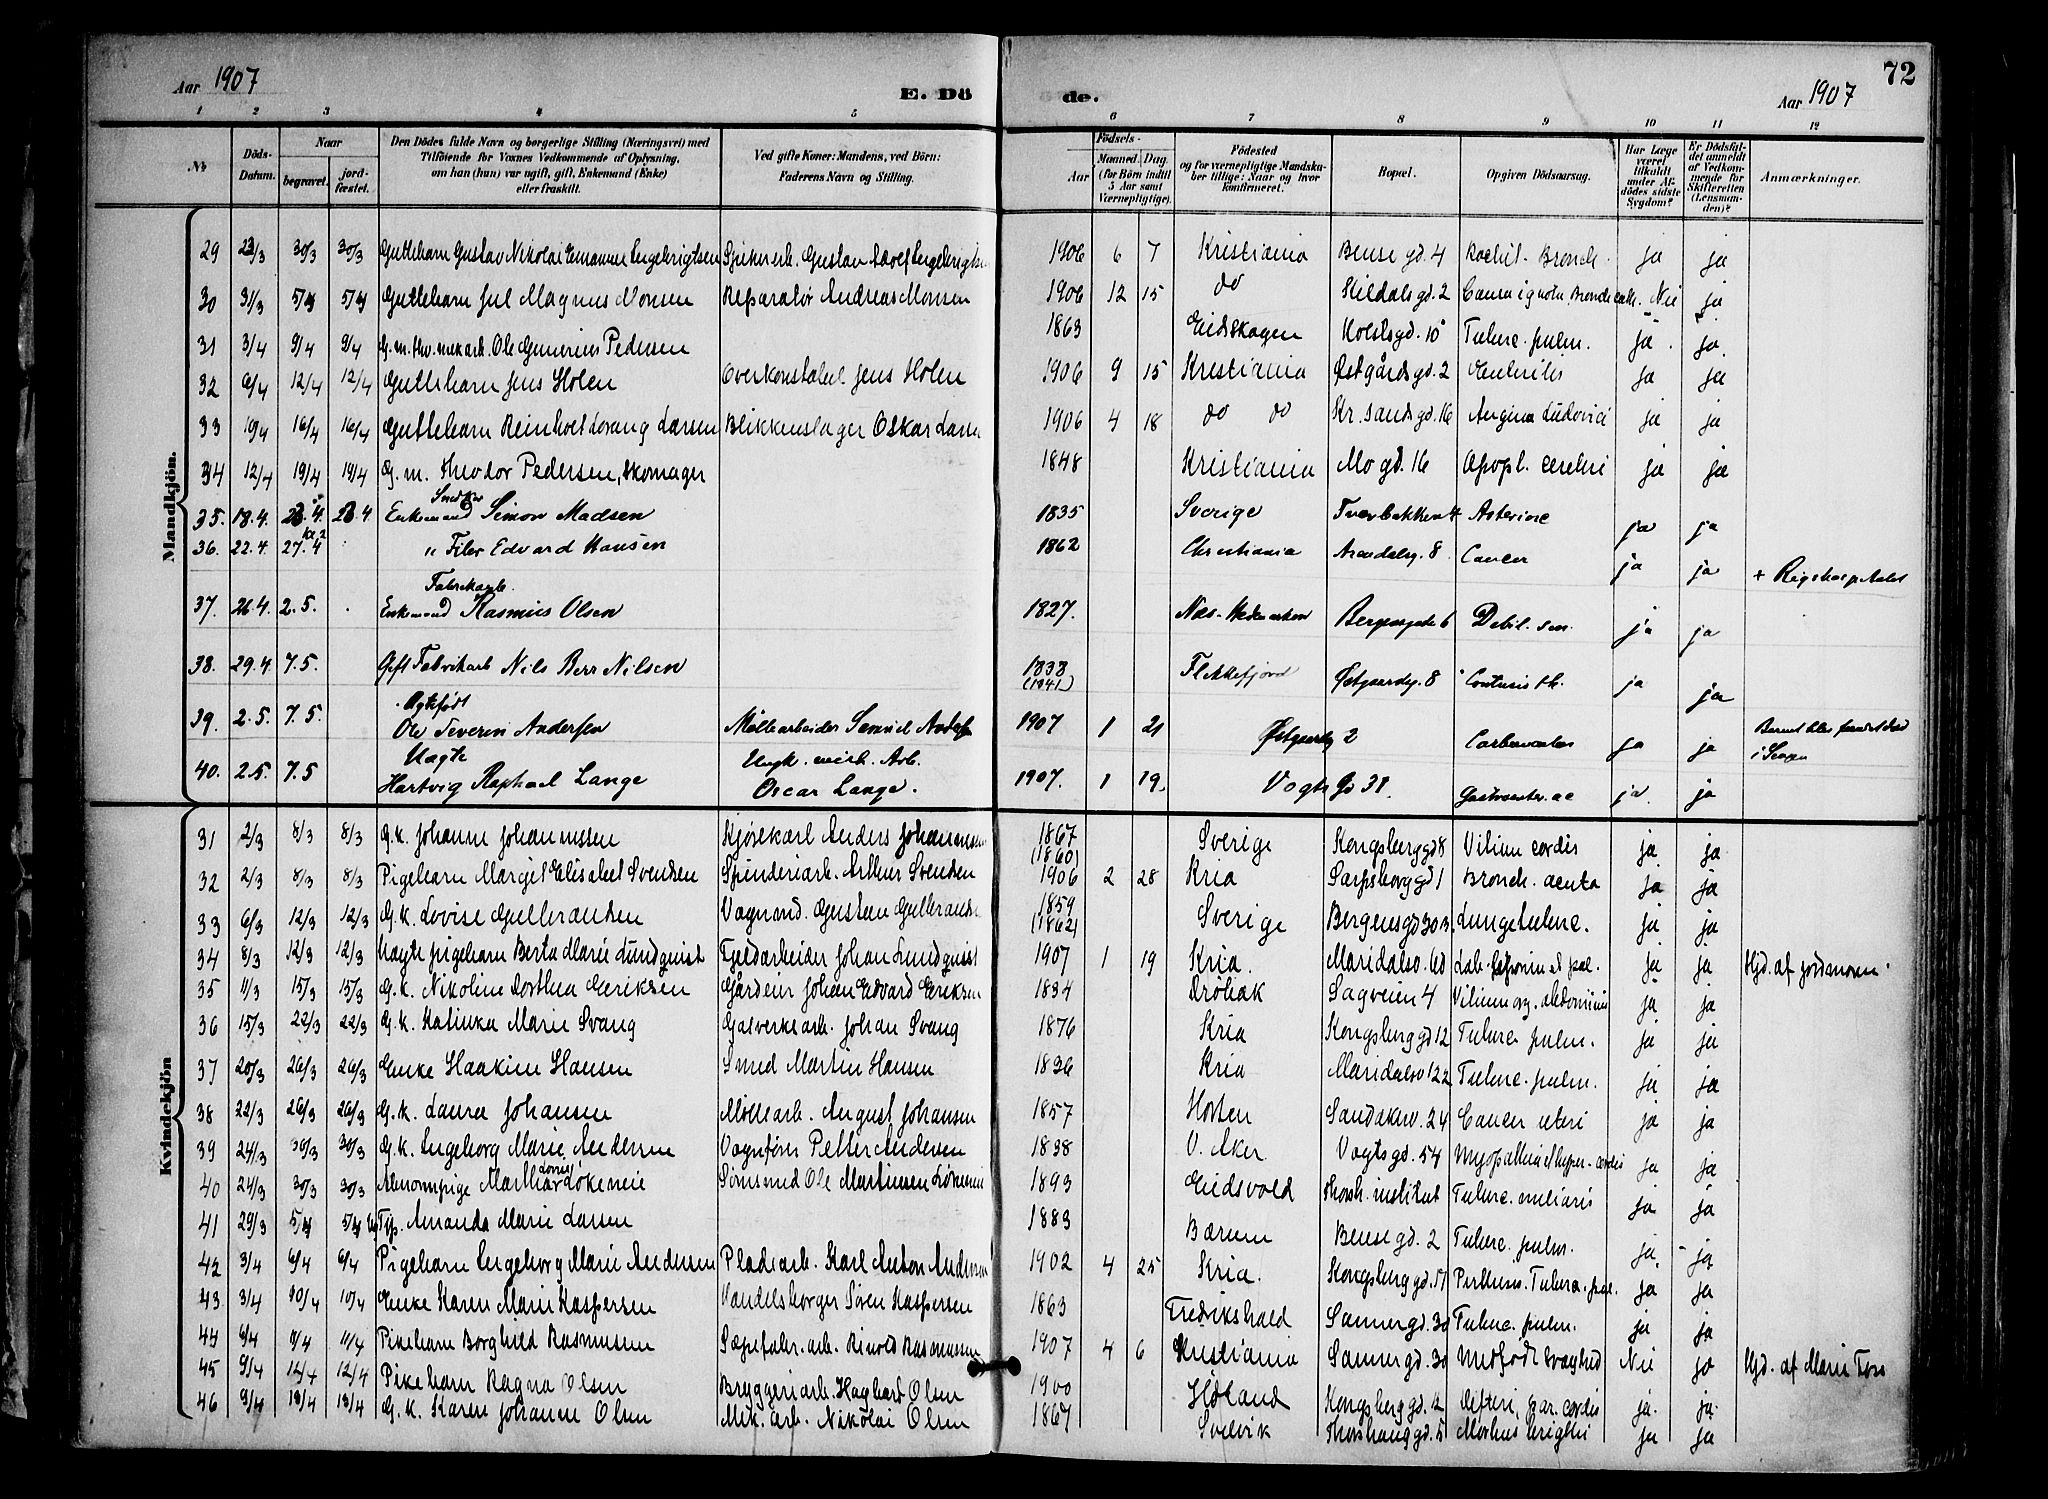 Aar 1907
E. Dö
de.
Aar 1907
72
1 2 3 4 5 6 7 8 9 10 11 12
№
Döds-Datum.
Naar
begravet.
jord-fæstet.
Den Dödes fulde Navn og borgerlige Stilling (Næringsvei) med
Tilföiende for Voxnes Vedkommende af Oplysning,
om han (hun) var ugift, gift, Enkemand (Enke)
eller fraskilt.
Ved gifte Koner: Mandens, ved Börn:
Faderens Navn og Stilling.
Födsels-
Aar
Maaned. Dag.
(for Börn indtil
5 Aar samt
Værnepligtige).
Födested
og for værnepligtige Mandska-
ber tillige: Naar og hvor
konfirmeret.
Bopæl.
Opgiven Dödsaarsag.
Har Læge
været
tilkaldt
under Af-
dödes sidste
Sygdom?
Er Dödsfal-
det anmeldt
af Vedkom-
mende for
Skifteretten
(Lensman-
den)?
Anmærkninger.
Mandkjön.
29 23/3 30/3 30/3 Guttebarn Gustav Nikolai Emanuel Engebrigtsen Gustav Adolf Engebrigtsen 1906 6 7 Kristiania Bense gd. 4 Rachit. Bronch. ja ja
30 31/3 5/4 5/4 Guttebarn Jul Magnus Monsen Reparatør Andreas Monsen 1906 12 15 do Hildals gd. 2 Causa ignota, Bronch. Nei ja
31 3/4 9/4 9/4 G. m. Ole Gunerius Pedersen 1863 Eidskogen Holstsgd. 10 Tuberc. pulm. ja ja
32 6/4 12/4 12/4 Guttebarn Jens Holen Overkonstabel Jens Holen 1906 9 15 Kristiania Østgårds gd. 2 Enteritis ja ja
33 10/4 16/4 16/4 Guttebarn Reinholt Lorang Larsen Blikkenslager Oskar Larsen 1906 4 18 do do Kr. sands gd. 16 Angina Ludovici ja ja
34 12/4 19/4 19/4 G. m. Theodor Pedersen, Skomager 1848 Kristiania Mo gd. 16 Apopl. cerebri ja ja
35. 18.4. 23.4. 23.4 Enkemand Snedker Simon Madsen 1835 Sverige Tverbakken 4 ja ja
36. 22.4. 27.4 " Filer Edvard Hansen 1862 Christiania Arendalsg. 8 Cancer ja ja + Rigshospitalet
37. 26.4. 2.5. Fabrikarb. Enkemand Rasmus Olsen 1827. Næs. Hedemarken Bergensgade 6 Debil. sen. ja ja
38. 29.4. 7.5. Gift Fabrikarb Nils Berr Nilsen 1838 (1841) Flekkefjord Østgaardsg. 8 ja ja
39. 2.5. 7.5. Ægtefødt Ole Severin Andersen Møllearbeider 1907 1 21 Østgaardsg 2 ja ja Barnet blev fundet død i Sengen
40. 2.5. 7.5 Uægte Hartvig Raphael Lange Ungk. Arb. Oscar Lange. 1907. 1 19 Vogts Gd 31 Gastroenter. ac ja. ja
Kvindekjön
31 2/3 8/3 8/3 G. k. Johanne Johannessen Kjørekarl Anders Johannessen 1867 (1860) Sverige Kongsberg gd 8 Vitium cordis ja ja
32 2/3 8/3 8/3 Pigebarn Margit Elisabet Svendsen Spinderiarb. Arthur Svendsen 1906 2 28 Kria Sarpsborg gd 1 Bronch. acuta ja ja
33 6/3 12/3 12/3 G. k. Lovise Gulbrandsen Vognmd. Gulbrandsen 1859 (1862) Sverige Bergensgd 30 B. Lungetuberc. ja ja
34 8/3 12/3 12/3 Uægte pigebarn Berta Marie Lundquist Fjeldarbeider Johan Lundquist 1907 1 19 Kria. Maridalsv. 60 ja ja Hjd. af jordmoren
35 11/3 15/3 15/3 G. k. Nikoline Dorthea Eriksen Gårdeier Johan Edvard Eriksen 1834 Drøbak Sagveien 4 Vitium org. abdominum ja ja
36 15/3 22/3 22/3 G. k. Katinka Marie Svang Gasverksarb. Johan Svang 1876 Kria Kongsberg gd 12 Tuberc. pulm. ja ja
37 20/3 26/3 26/3 Enke Haakine Hansen Smed Martin Hansen 1836 Kria Maridalsv 122 Tuberc. pulm. ja ja
38 22/3 26/3 26/3 G. k. Laura Johansen Møllearb. August Johansen 1857 Horten Sandakerv. 24 Cancer uteri ja ja
39 24/3 30/3 30/3 G. k. Ingeborg Marie Andersen Vognfører Petter Andersen 1838 V. Aker Vogts gd. 54 ja ja
40 24/3 30/3 30/3 Martha Ole Martinsen 1893 Eidsvold Thorsh. institut Tuberc. miliaris ja ja
41 29/3 5/4 5/4 Amanda Marie Larsen 1883 Bærum Bense gd. 2 Tuberc. pulm. ja ja
42 3/4 6/4 6/4 Pigebarn Ingeborg Marie Andersen Pladearb. Karl Anton Andersen 1902 4 25 Kria. Kongsberg gd. 11 Tuberc. pul. ja ja
43 3/4 10/4 10/4 Enke Karen Marie Kaspersen Handelsborger Søren Kaspersen 1863 Fredrikshald Sanner gd. 30 Tuberc. pulm. ja ja
44 6/4 11/4 11/4 Pikebarn Borghild Rasmussen Sæpefabr. arb. Rinold Rasmussen 1907 4 6 Kristiania Sanner gd. 30 Medfødt svaghed Nei ja Hjd. af Marie
45 9/4 12/4 12/4 Pikebarn Ragna Olsen Bryggeriarb. Hagbart Olsen 1900 Høland Kongsberg gd. 12 Difteri, par. cordis ja. ja.
46 9/4 13/4 13/4 G. k. Karen Johanne Olsen Mek. arb. Nikolai Olsen 1867 Svelvik Thorshaug gd. 5 Morbus Brightii ja ja